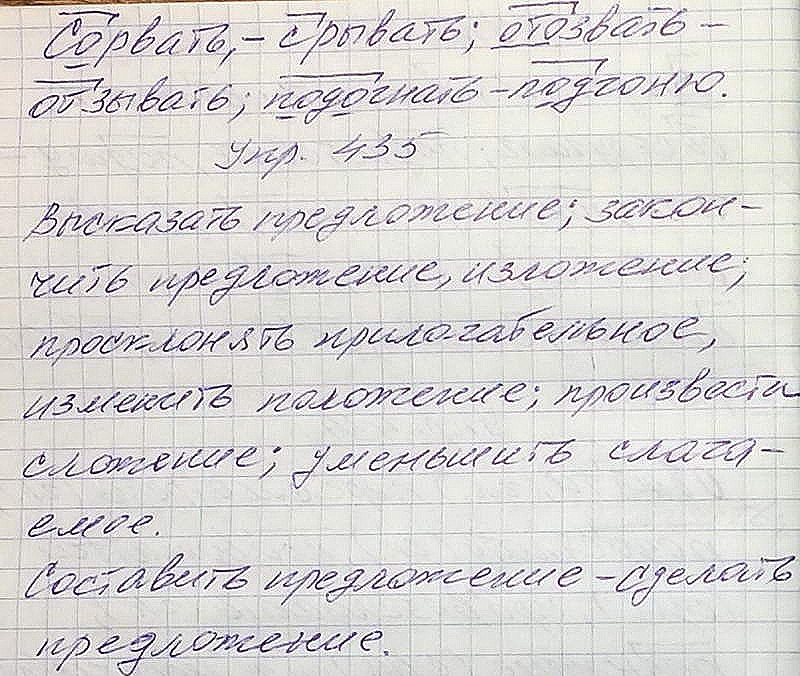 Сорвать, – срывать; отозвать –
отзывать; подогнать – подгоню.
Упр. 435
Высказать предложение; закон-
чить предложение, изложение;
просклонять прилагательное,
изменить положение; произвести
сложение; уменьшить слага-
емое.
Составить предложение – сделать
предложение.